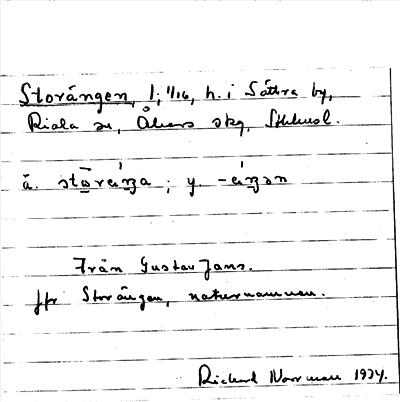 Storängen, 1, 1/16, h. i Sättra by,
Riala sn, Åkers skg, Sthlmsl.
ä. ; y.
Från Gustav Jans.
jfr Storängen, naturnamnen.
Rickard Norrman 1934.